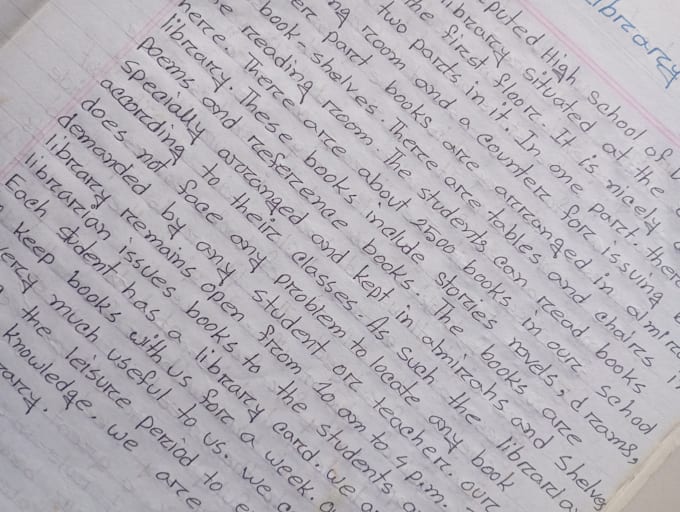 library
puted High School of
library situated at the
the first floor. It is nicely
two parts in it. In one part, there
ng room and a counter for issuing
er part books are arranged in almira
book-shelves. There are tables and chairs in
e reading room. The students can read books
here. There are about 2500 books in our school
library. These books include stories, novels, drams,
poems and reference books. The books are
specially arranged and kept in almirahs and shelves
according to their classes. As such the libraria
does not face any problem to locate any book
demanded by any student or teacher. our
library remains open from 10 am to 4 p.m.
librarian issues books to the students
Each student has a library card. we
keep books with us for a week.
very much useful to us. we
the leisure period to
knowledge. we are
rary.